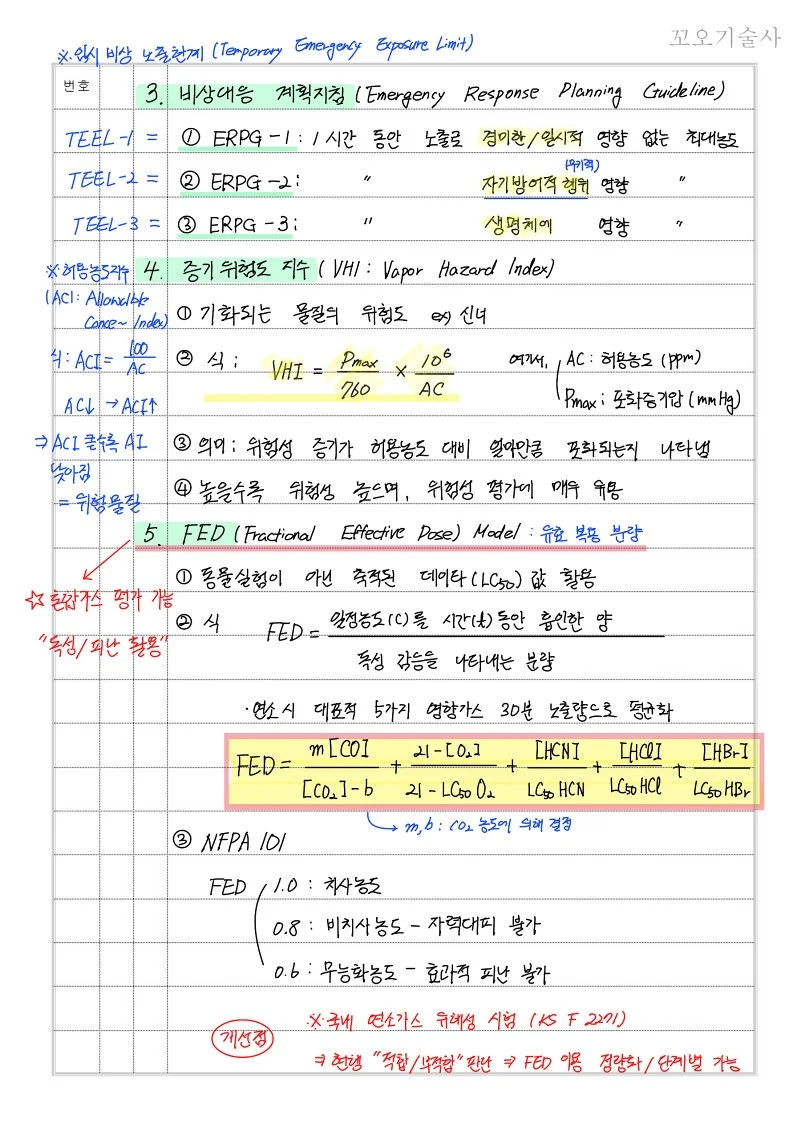 꼬오기술사
※ 임시 비상 노출한계 (Temporary Emergency Exposure Limit)
번호
3. 비상대응 계획지침 (Emergency Response Planning Guideline)
TEEL-1 = ① ERPG-1 : 1시간 동안 노출로 경미한/일시적 영향 없는 최대농도
(무기력)
TEEL-2 = ② ERPG-2: 〃 자기방어적 행위 영향 〃
TEEL-3 = ③ ERPG-3: 〃 생명체에 영향 〃
※ 허용농도지수
(ACI: Allowable
Conce~ Index)
식: ACI = 100/AC
AC↓ → ACI↑
⇒ ACI 클수록 AI
낮아짐
= 위험물질
4. 증기 위험도 지수 (VHI : Vapor Hazard Index)
① 기화되는 물질의 위험도 ex) 신너
② 식 ; VHI = Pmax/760 × 10⁶/AC 여기서, AC : 허용농도 (ppm)
Pmax ; 포화증기압 (mmHg)
③ 의미 ; 위험성 증기가 허용농도 대비 얼마만큼 포화되는지 나타냄
④ 높을수록 위험성 높으며, 위험성 평가에 매우 유용
5. FED (Fractional Effective Dose) Model : 유효 복용 분량
☆ 혼합가스 평가 가능
"독성/피난 활용"
① 동물실험이 아닌 축적된 데이타 (LC50) 값 활용
② 식 FED = 일정농도(C)를 시간(t) 동안 흡인한 양 / 독성 감응을 나타내는 분량
· 연소시 대표적 5가지 영향가스 30분 노출량으로 평균화
FED = m[CO]/[CO₂]-b + 21-[O₂]/21-LC50 O₂ + [HCN]/LC50 HCN + [HCl]/LC50 HCl + [HBr]/LC50 HBr
→ m,b : CO₂ 농도에 의해 결정
③ NFPA 101
FED 1.0 : 치사농도
0.8 : 비치사농도 - 자력대피 불가
0.6 : 무능화농도 - 효과적 피난 불가
개선점
※ 국내 연소가스 유해성 시험 (KS F 2271)
⇒ 현행 "적합/부적합" 판단 ⇒ FED 이용 정량화/단계별 가능